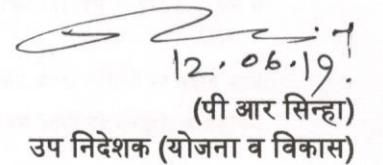 12.06.19
(पी आर सिन्हा)
उप निदेशक (योजना व विकास)